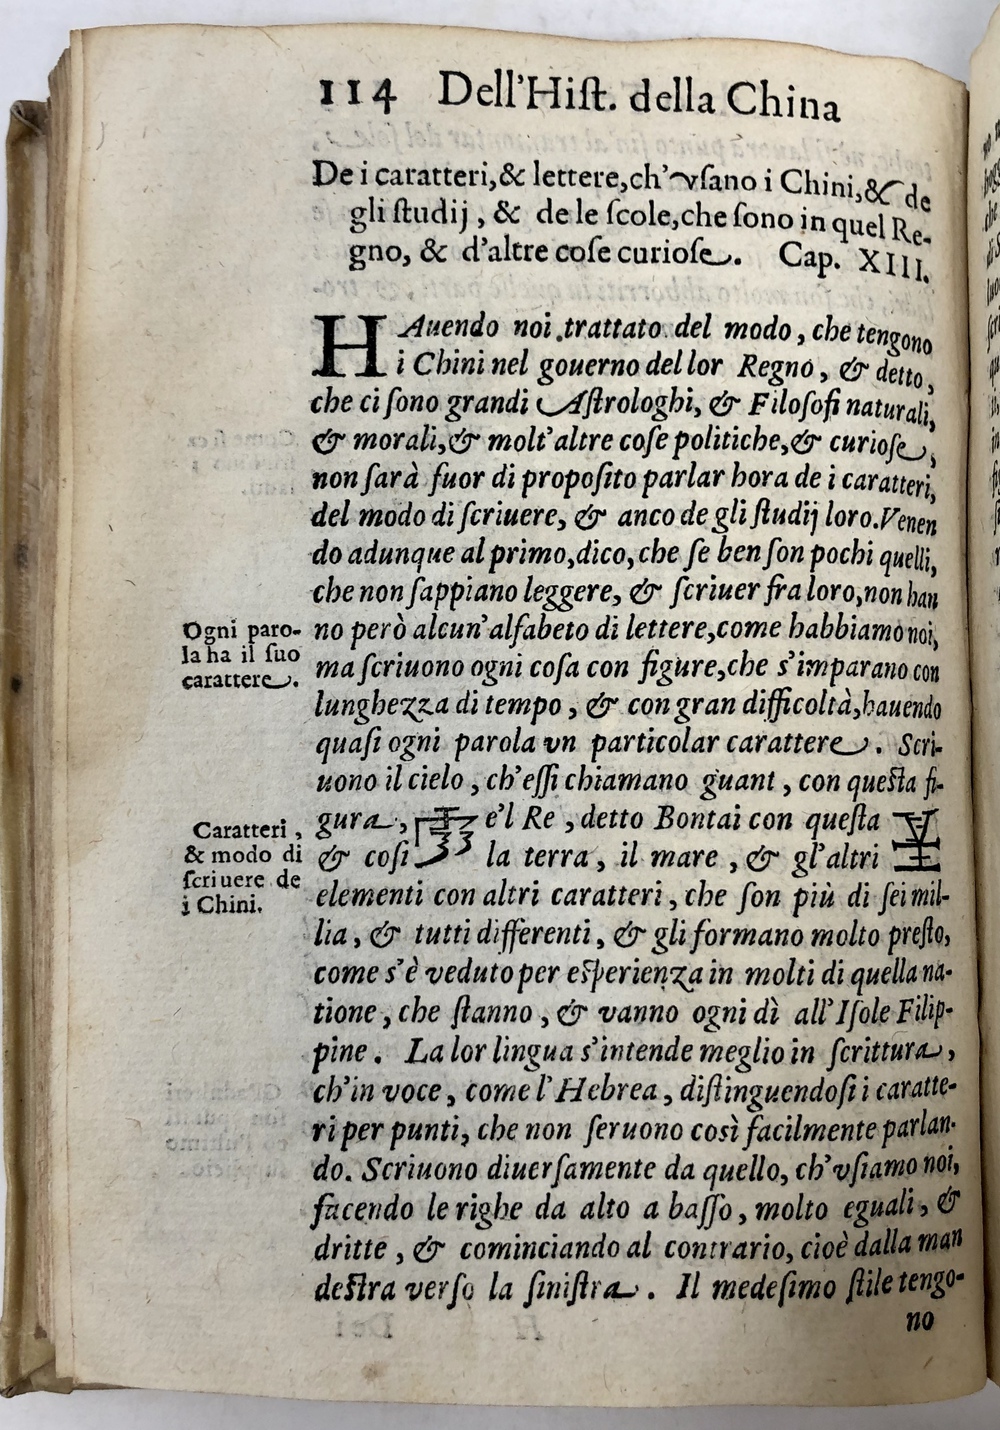 114 Dell'Hiſt. della China
De i caratteri,& lettere,ch'vſano i Chini,& de
gli ſtudij, & de le ſcole,che ſono in quel Re-
gno, & d'altre coſe curioſe. Cap. XIII.
HAuendo noi trattato del modo, che tengono
i Chini nel gouerno del lor Regno, & detto,
che ci ſono grandi Aſtrologhi, & Filoſofi naturali,
& morali,& molt'altre coſe politiche,& curioſe,
non ſarà fuor di propoſito parlar hora de i caratteri,
del modo di ſcriuere, & anco de gli ſtudij loro.Venen
do adunque al primo,dico, che ſe ben ſon pochi quelli,
che non ſappiano leggere, & ſcriuer fra loro,non han
Ogni paro-
la ha il ſuo
carattere.
no però alcun'alfabeto di lettere,come habbiamo noi,
ma ſcriuono ogni coſa con figure,che s'imparano con
lunghezza di tempo, & con gran difficoltà,hauendo
quaſi ogni parola vn particolar carattere. Scri-
uono il cielo, ch'eſſi chiamano guant, con queſta fi-
Caratteri,
& modo di
ſcriuere de
i Chini.
gura, e'l Re, detto Bontai con queſta
& coſi la terra, il mare, & gl'altri
elementi con altri caratteri, che ſon più di ſei mil-
lia, & tutti differenti, & gli formano molto preſto,
come s'è veduto per eſperienza in molti di quella na-
tione, che ſtanno, & vanno ogni dì all'Iſole Filip-
pine. La lor lingua s'intende meglio in ſcrittura,
ch'in voce, come l'Hebrea, diſtinguendoſi i caratte-
ri per punti, che non ſeruono così facilmente parlan-
do. Scriuono diuerſamente da quello, ch'vſiamo noi,
facendo le righe da alto a baſſo, molto eguali, &
dritte, & cominciando al contrario, cioè dalla man
deſtra verſo la ſiniſtra. Il medeſimo ſtile tengo-
no